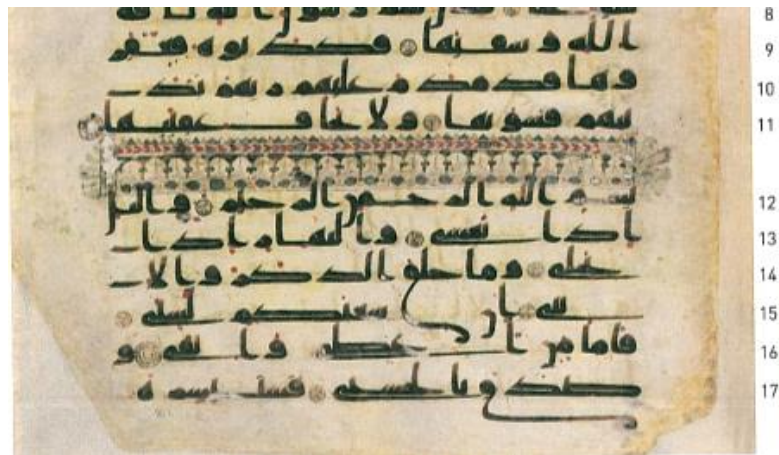 8
الله وسقيها فكذبوه فعقر 9
وها فدمدم عليهم ربهم بذ 10
نبهم فسويها ولا يخاف عقبيها 11
بسم الله الرحمن الرحيم واليل 12
اذا يغشى والنهار اذا 13
تجلى وما خلق الذكر والا 14
نثى ان سعيكم لشتى 15
فاما من اعطى واتقى و 16
صدق بالحسنى فسنيسره 17